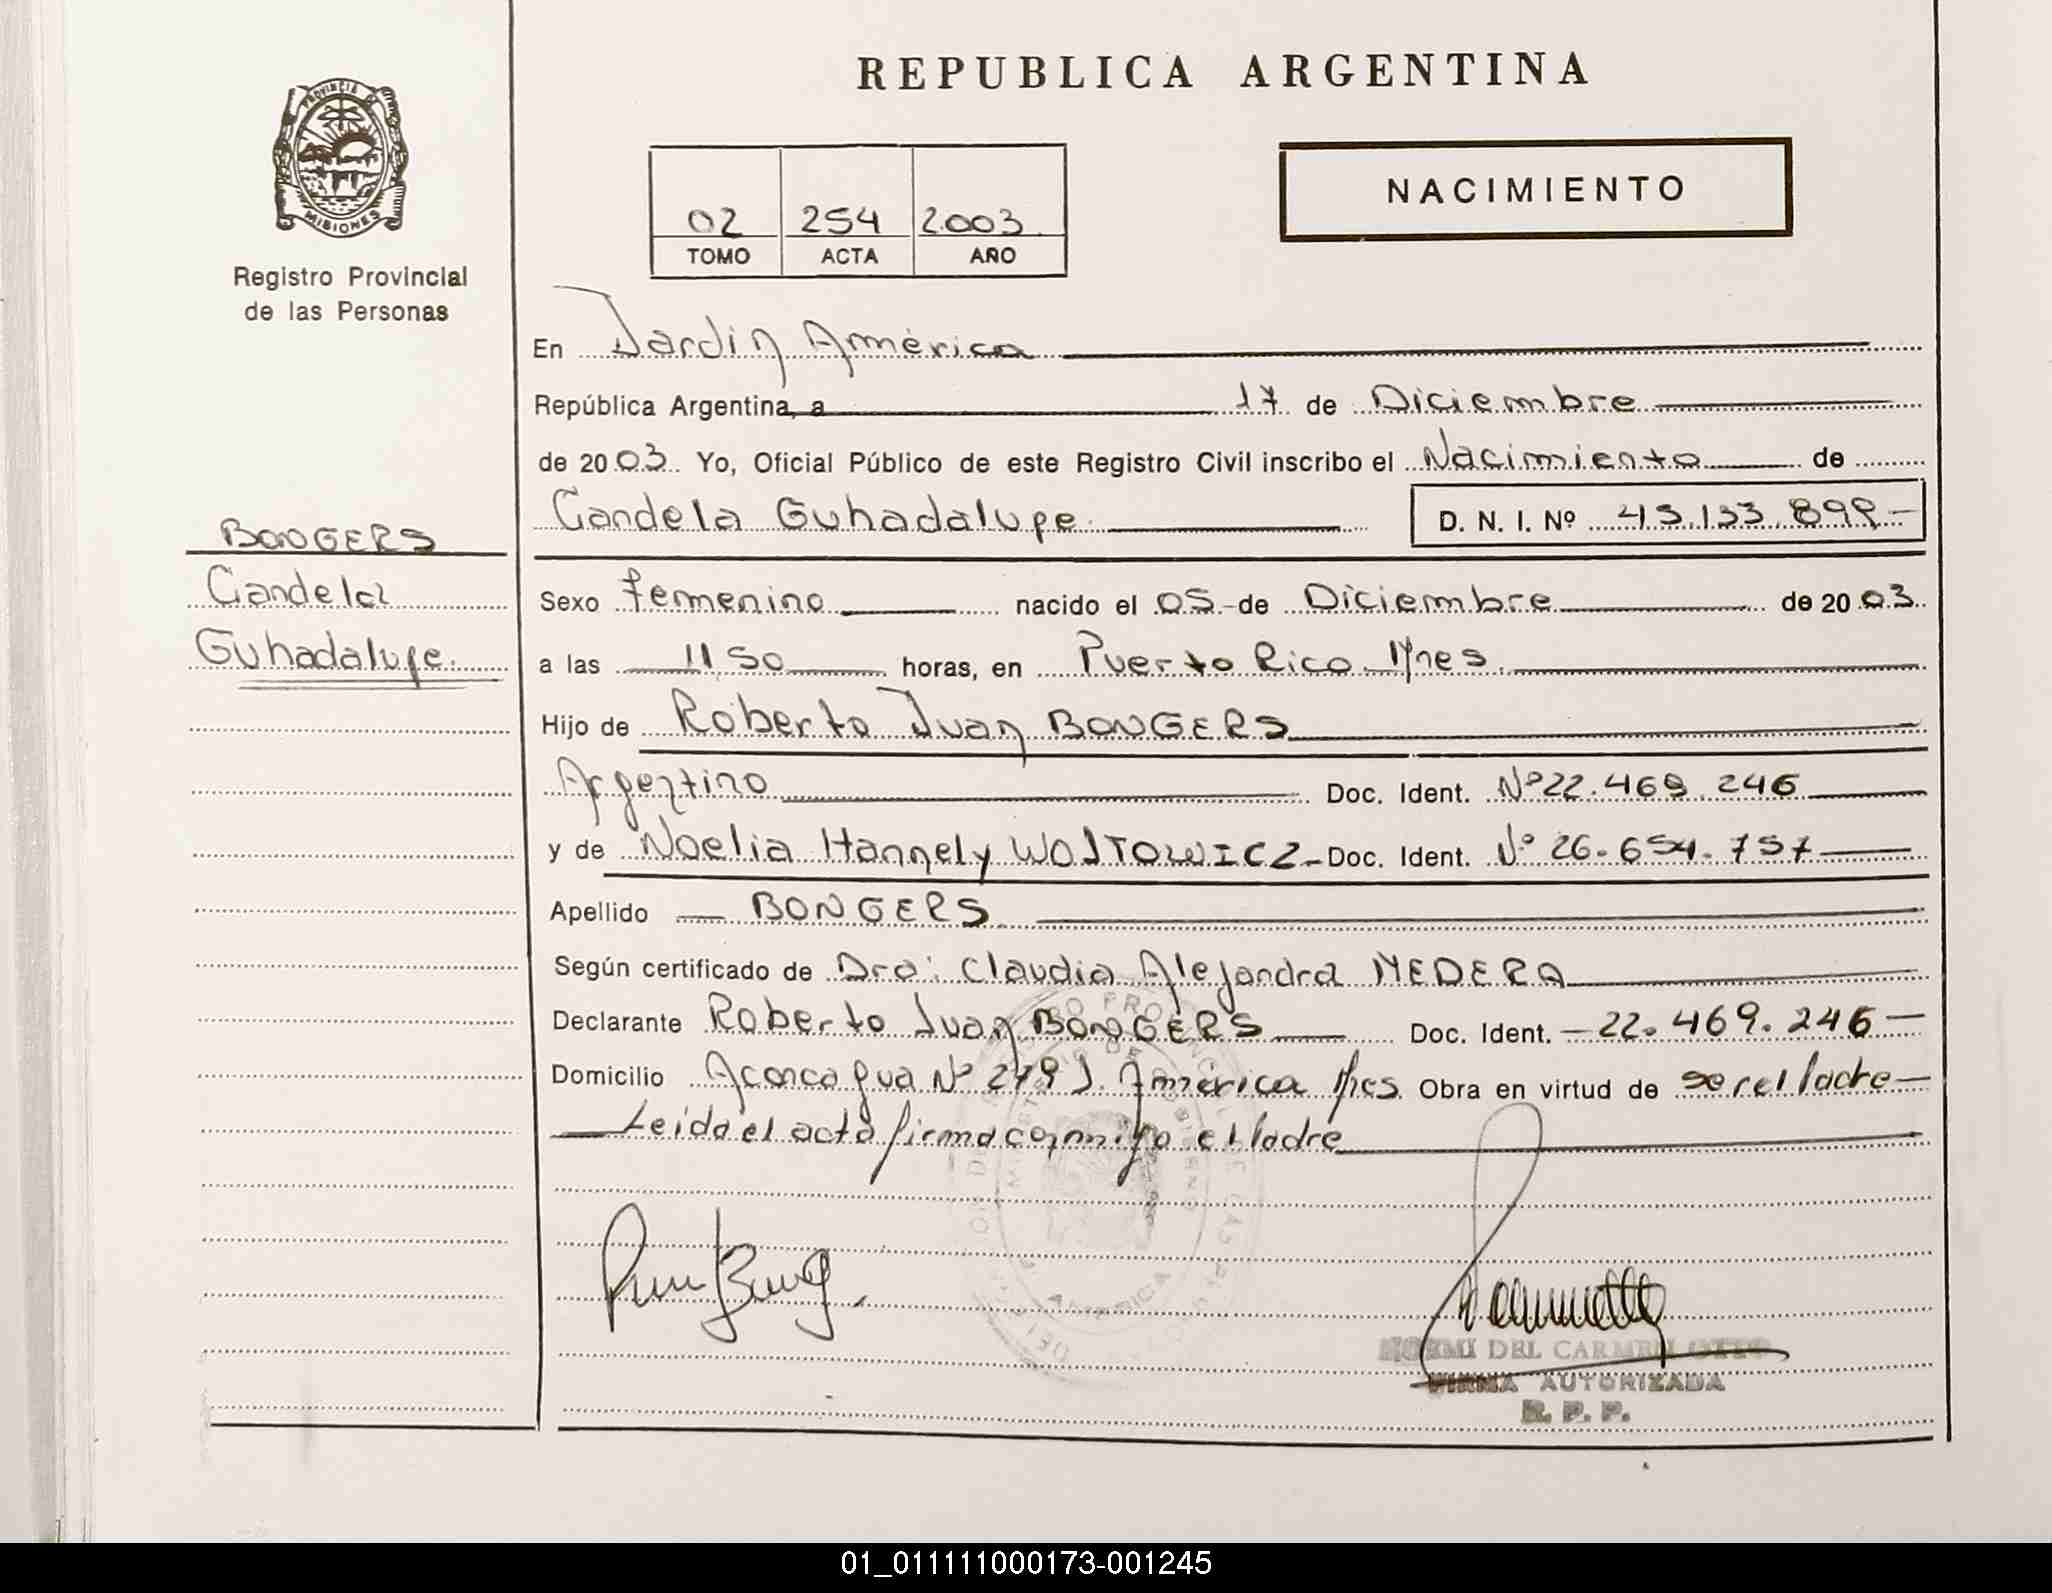 REPUBLICA ARGENTINA
PROVINCIA DE
MISIONES
Registro Provincial
de las Personas
02 254 2.003
TOMO ACTA AÑO
NACIMIENTO
En Jardin América
República Argentina, a 17 de Diciembre
de 2003 Yo, Oficial Público de este Registro Civil inscribo el Nacimiento de
Candela Guhadalupe D. N. I. Nº 45.133.899
BONGERS
Candela
Guhadalupe.
Sexo Femenino nacido el 05 de Diciembre de 2003
a las 11,50 horas, en Puerto Rico. Mnes.
Hijo de Roberto Juan BONGERS
Argentino Doc. Ident. Nº 22.469.246
y de Noelia Hannely WOJTOWICZ Doc. Ident. Nº 26.654.757
Apellido BONGERS
Según certificado de Dra: Claudia Alejandra MEDERA
Declarante Roberto Juan BONGERS Doc. Ident. 22.469.246
Domicilio Aconcagua Nº 279 J. América Mnes. Obra en virtud de ser el Padre
Leida el acta firma conmigo el Padre
NORMI DEL CARMEN OTTO
FIRMA AUTORIZADA
R. P. P.
01_011111000173-001245